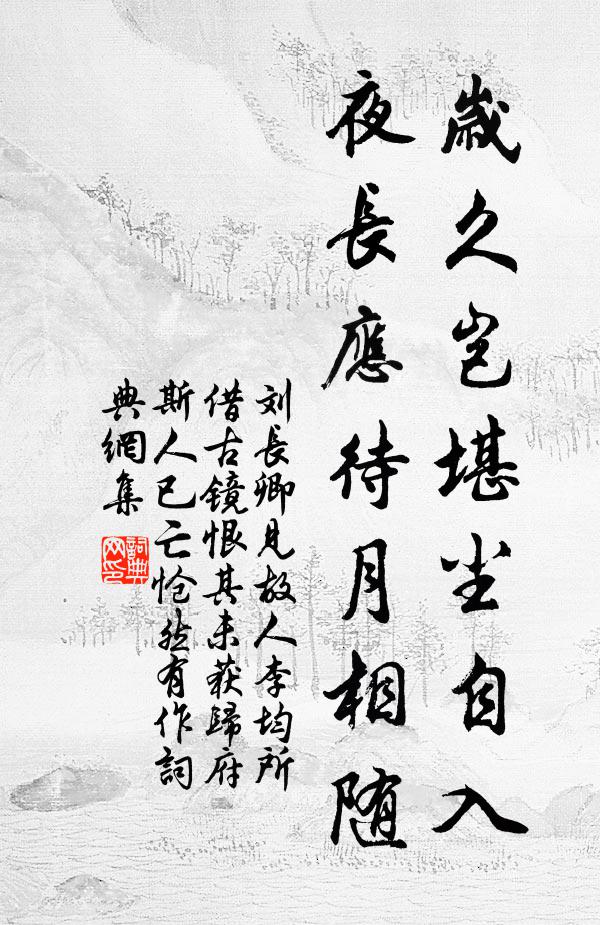 歲久岂堪尘自入
夜長應待月相随
刘長卿見故人李均所
借古镜恨其未获歸府
斯人已亡怆然有作詞
典網集
詞典
网印